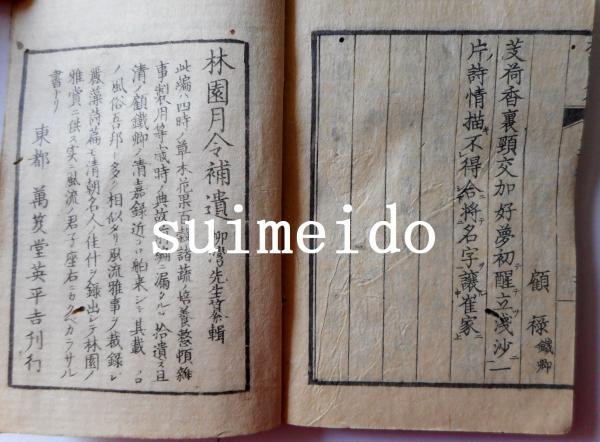 顧祿鐵卿
芰荷香裏頸交加好夢初醒立淺沙一
片詩情描不得合將名字讓崔家
林園月令補遺 柳灣先生纂輯
此編ハ四時ノ草木花果百穀諸蔬培養整頓雜
事製用等歲時ノ典故
編ニ漏タルヲ拾遺シ且
清ノ顧鐵卿ガ清嘉錄近
舶来シ其載
ノ風俗吾邦ト多ク相似タリ風流雅事ヲ裁録シ
嚴藻詩篇モ清朝名人ノ佳什ヲ錄出シテ林園ノ
雅賞ニ供ス実ニ風流ノ君子座右ニカクベカラサル
書ナリ
東都 萬笈堂英平吉刊行
suimeido